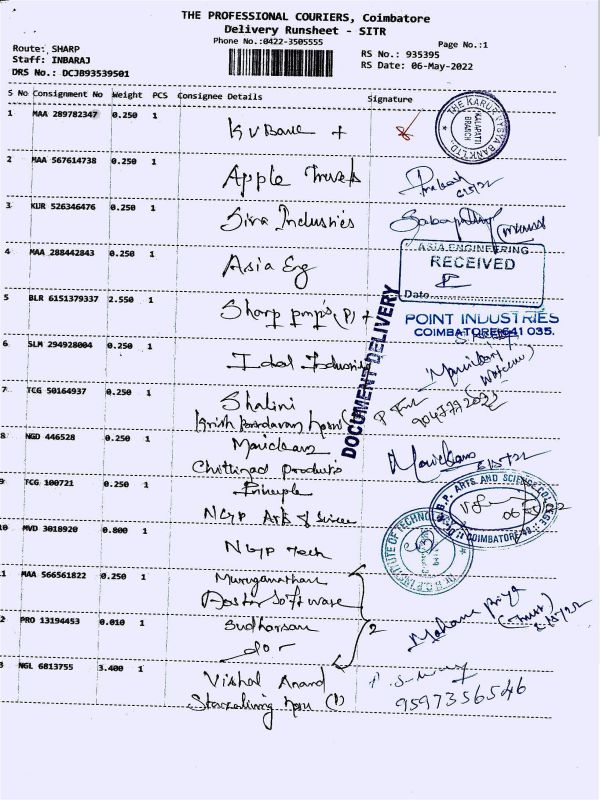 THE PROFESSIONAL COURIERS, Coimbatore
Delivery Runsheet - SITR
Phone No.:0422-3505555
Page No.:1
Route: SHARP
Staff: INBARAJ
DRS No.: DCJB93539501
RS No.: 935395
RS Date: 06-May-2022
S No Consignment No Weight PCS Consignee Details Signature
1 MAA 289782347 0.250 1 KV Bank
THE KARUR VYSYA BANK LTD. KALAPATTI BRANCH
2 MAA 567614738 0.250 1 Apple Travels Prakash 6/5/22
3 KUR 526346476 0.250 1 Siva Industries Sabapathy
4 MAA 288442843 0.250 1 Asia Eng
ASIA ENGINEERING
RECEIVED
Date
5 BLR 6151379337 2.550 1 Sharp pmp's (P)
POINT INDUSTRIES
COIMBATORE-641 035.
DOCUMENT DELIVERY
6 SLM 294928004 0.250 1 Ideal Industries
7 TCG 50164937 0.250 1 Shalini
8 NGD 446528 0.250 1
Chettinad products 6/5/22
9 TCG 100721 0.250 1 Principle
NGP Arts & Science
ARTS AND SCIENCE COLLEGE COIMBATORE-48
10 MVD 3018920 0.800 1 NGP Tech
INSTITUTE OF TECHNO
11 MAA 566561822 0.250 1 Muruganathan
Software
2 PRO 13194453 0.010 1 Sudharsan
-do-
2
Mohana Priya
3 NGL 6813755 3.400 1 Vishal Anand
9597356546